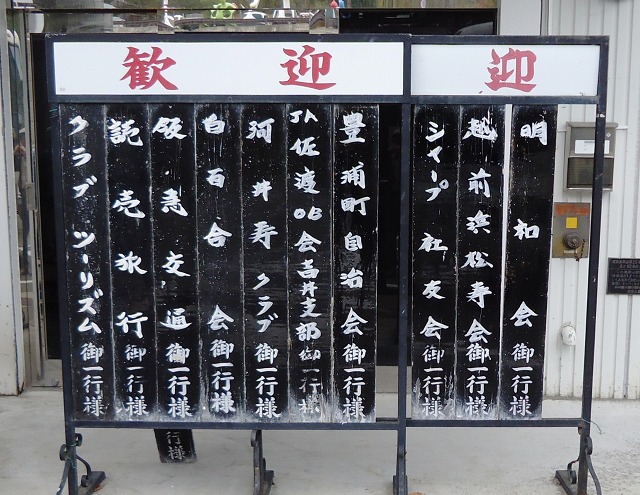 歓迎
迎
明和会御一行様
越前浜松寿会御一行様
シャープ社友会御一行様
豊浦町自治会御一行様
JA佐渡OB会吉井支部御一行様
河井寿クラブ御一行様
白百合会御一行様
阪急交通御一行様
読売旅行御一行様
クラブツーリズム御一行様
行様